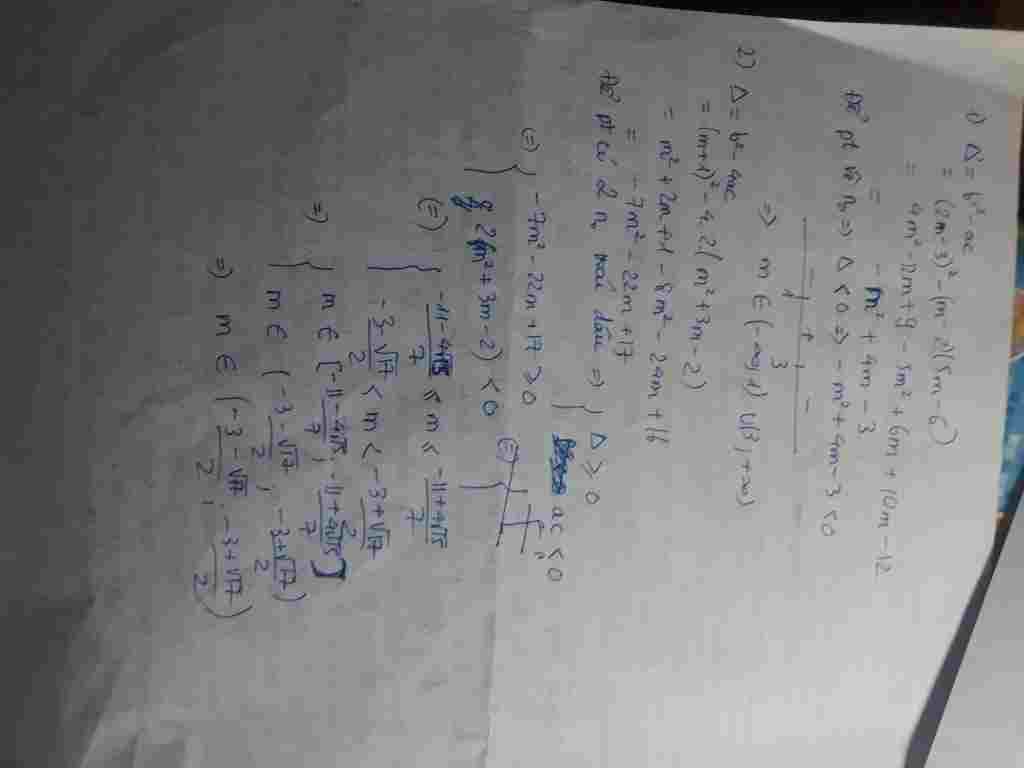 1) Δ' = b'² - ac
= (2m-3)² - (m-2)(5m-6)
= 4m² - 12m + 9 - 5m² + 6m + 10m - 12
= - m² + 4m - 3
Để pt vô n₀ => Δ' < 0 => - m² + 4m - 3 < 0
- 1 + 3 -
=> m ∈ (-∞; 1) ∪ (3; +∞)
2) Δ = b² - 4ac
= (m+1)² - 4.2(m² + 3m - 2)
= m² + 2m + 1 - 8m² - 24m + 16
= - 7m² - 22m + 17
Để pt có 2 n₀ trái dấu => { Δ ≥ 0
ac < 0
(=) { - 7m² - 22m + 17 ≥ 0
2(m² + 3m - 2) < 0
(=) { (-11 - 4√15)/7 ≤ m ≤ (-11 + 4√15)/7
(-3 - √17)/2 < m < (-3 + √17)/2
=> { m ∈ [(-11 - 4√15)/7; (-11 + 4√15)/7]
m ∈ ((-3 - √17)/2; (-3 + √17)/2)
=> m ∈ ((-3 - √17)/2; (-3 + √17)/2)